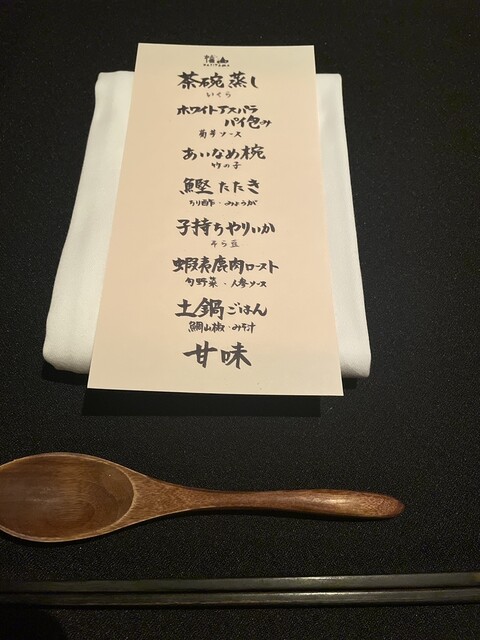 茶碗蒸し
いくら
ホワイトアスパラ
パイ包み
菊芋ソース
あいなめ椀
竹の子
鰹たたき
ちり酢・みょうが
子持ちやりいか
そら豆
蝦夷鹿肉ロースト
旬野菜・人参ソース
土鍋ごはん
鯛山椒・みそ汁
甘味